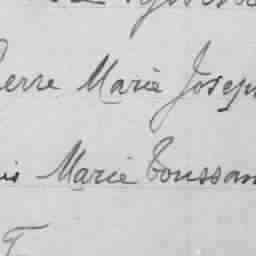 erre Marie Josep
is Marie Toussan